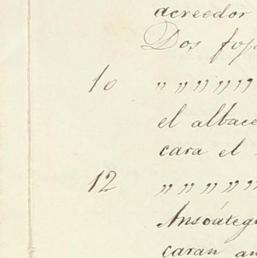 acreedor
Dos
10 " " " " " "
el albace
cara el
12 " " " " " "
Ansoateg
caran an